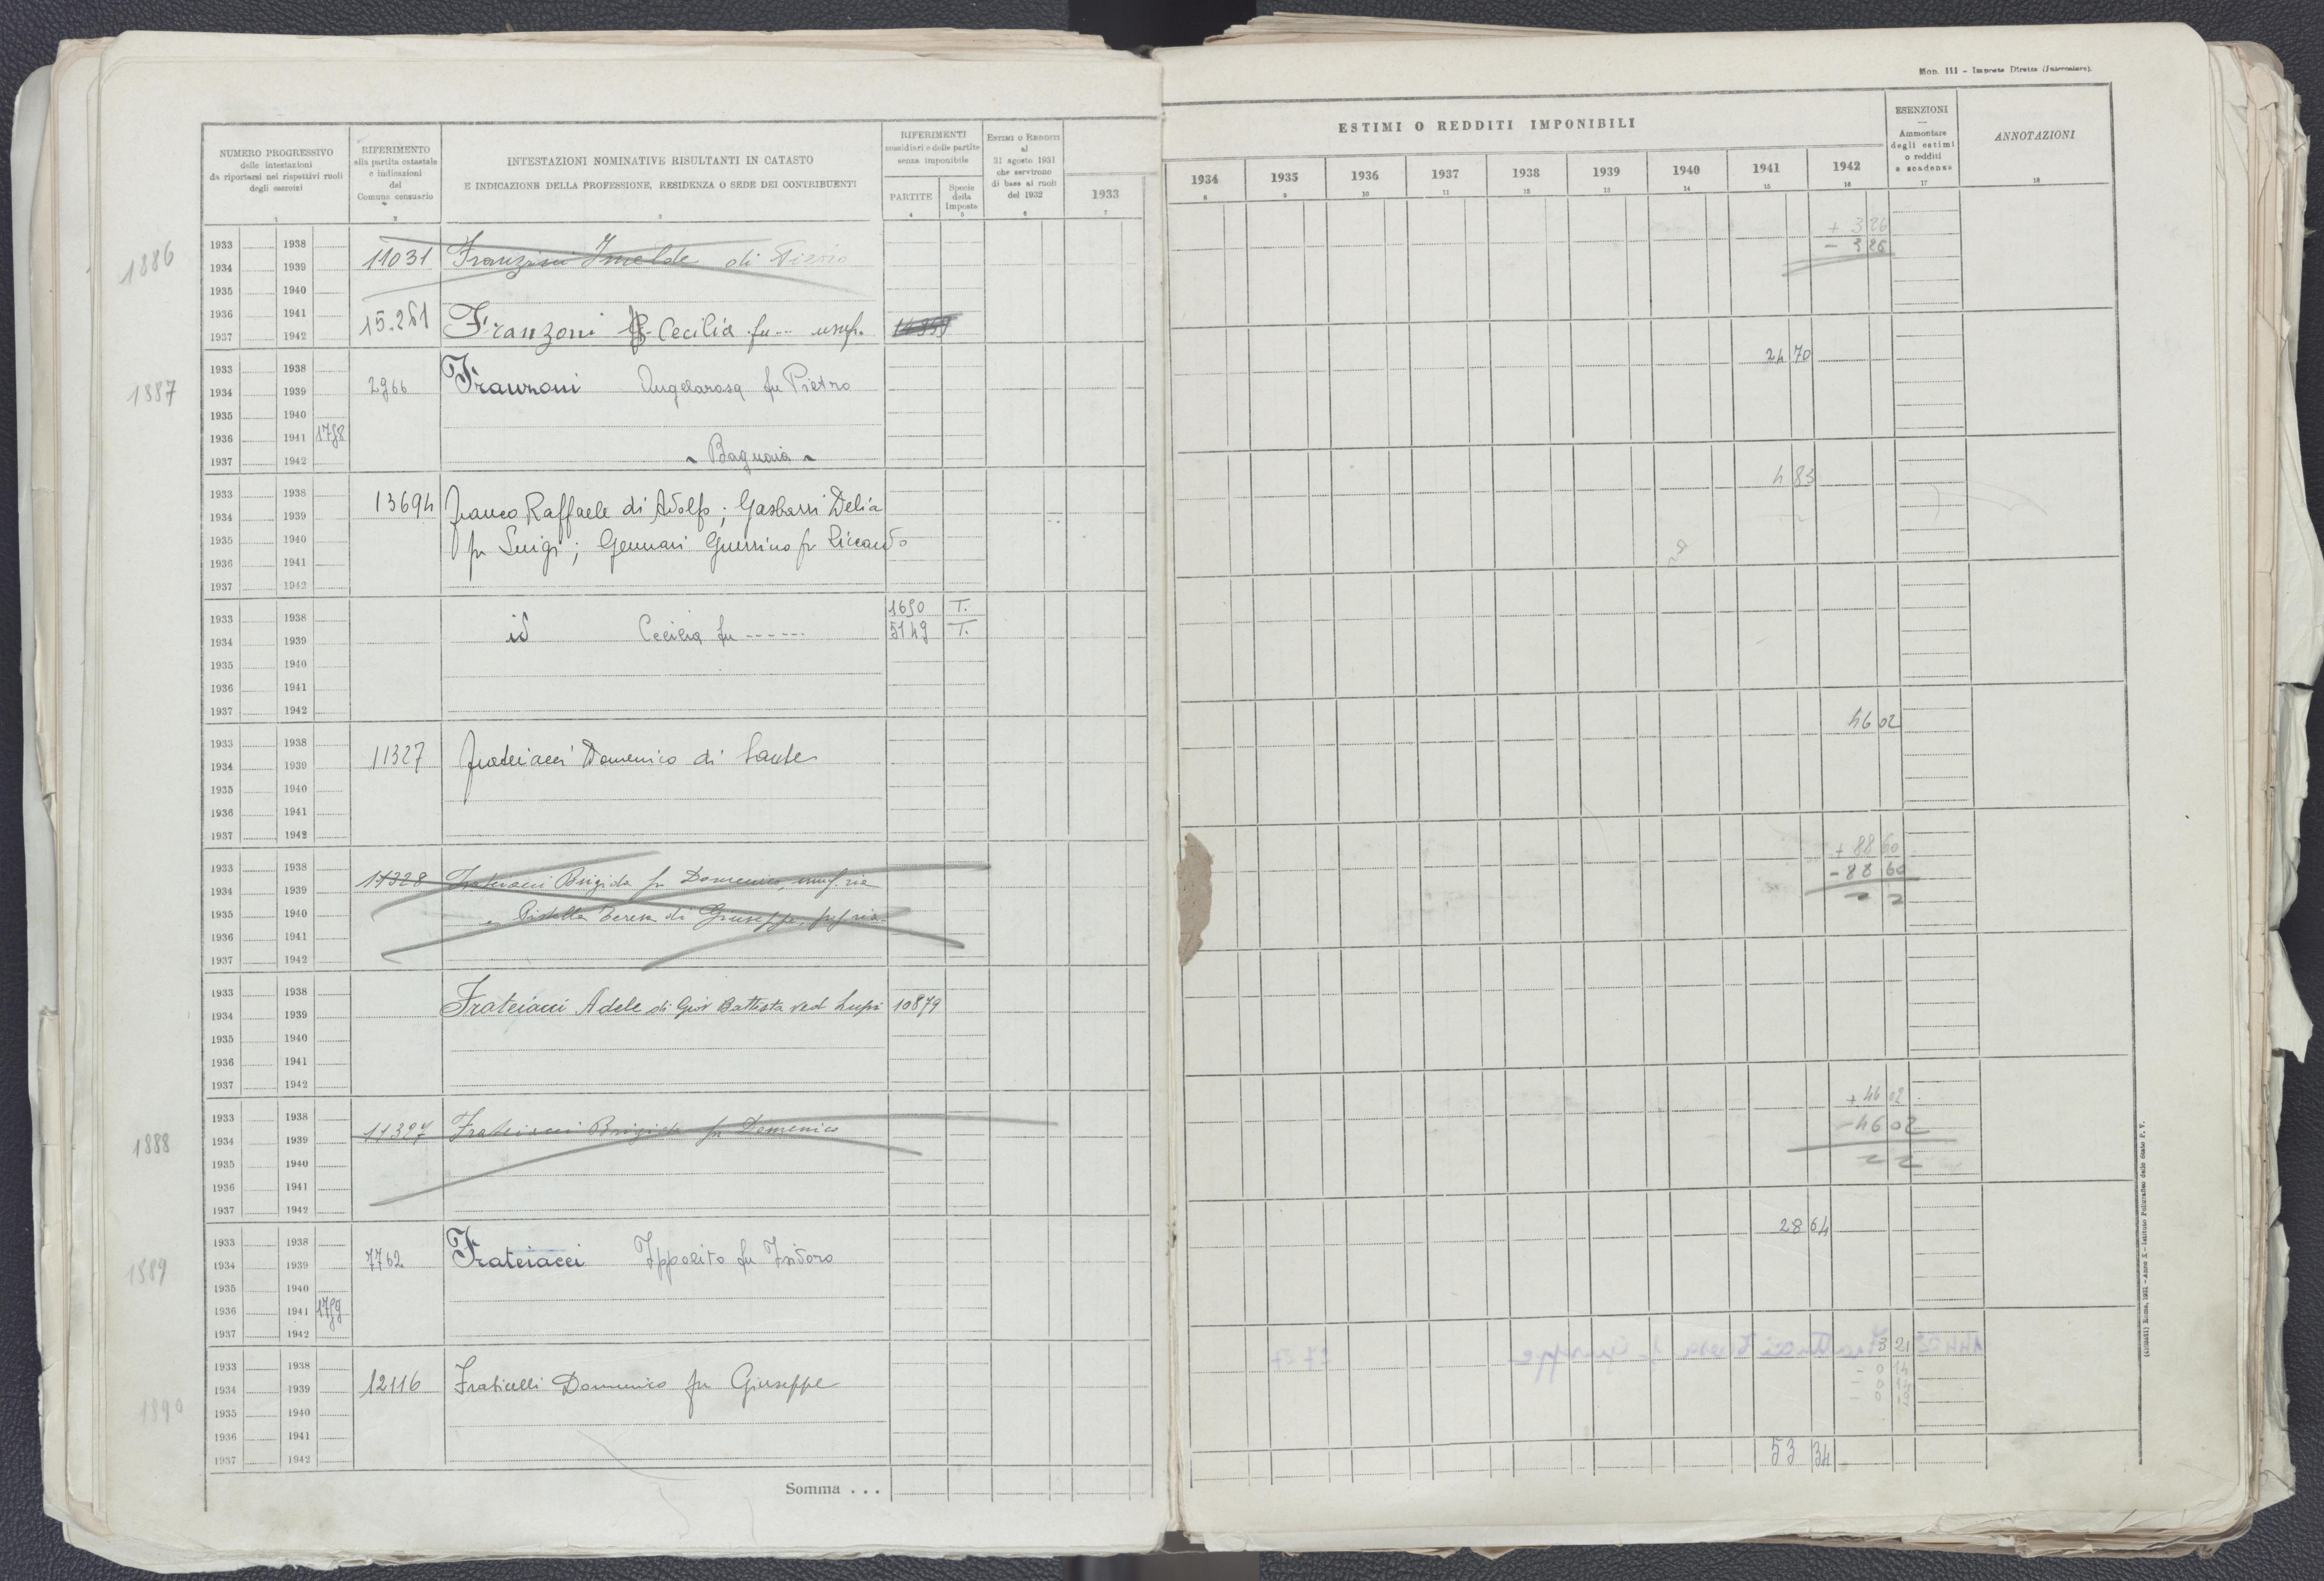 Mod. 111 - Imposte Dirette (Intercalare).
NUMERO PROGRESSIVO
delle intestazioni
da riportarsi nei rispettivi ruoli
degli esercizi
1
RIFERIMENTO
alla partita catastale
e indicazioni
del
Comune censuario
2
INTESTAZIONI NOMINATIVE RISULTANTI IN CATASTO
E INDICAZIONE DELLA PROFESSIONE, RESIDENZA O SEDE DEI CONTRIBUENTI
3
RIFERIMENTI
sussidiari e delle partite
senza imponibile
PARTITE
4
Specie
della
Imposta
5
ESTIMI O REDDITI
al
31 agosto 1931
che servirono
di base ai ruoli
del 1932
6
1933
7
ESTIMI O REDDITI IMPONIBILI
1934 1935 1936 1937 1938 1939 1940 1941 1942
8 9 10 11 12 13 14 15 16
ESENZIONI
—
Ammontare
degli estimi
o redditi
e scadenza
17
ANNOTAZIONI
18
1886
1933 1938
1934 1939
1935 1940
1936 1941
1937 1942
11031 Franzini Imelde di
+ 3 26
- 3 26
15.261 Franzoni Cecilia fu --- usuf.
1887
1933 1938
1934 1939
1935 1940
1936 1941 1798
1937 1942
2966 Franzoni Angelarosa fu Pietro
- Bagnaia -
24 70
1933 1938
1934 1939
1935 1940
1936 1941
1937 1942
13694 Franco Raffaele di Adolfo; Gasbarri Delia
fu Luigi; Gennari Guerrino fu Riccardo
4 83
1933 1938
1934 1939
1935 1940
1936 1941
1937 1942
id Cecilia fu ------
1690 T.
5149 T.
1933 1938
1934 1939
1935 1940
1936 1941
1937 1942
11327 Frateiacci Domenico di Sante
46 02
1933 1938
1934 1939
1935 1940
1936 1941
1937 1942
11328 Frateiacci Brigida fu Domenico, usuf.ria
e Pistella Teresa di Giuseppe, prop.ria
+ 88 60
- 88 60
1933 1938
1934 1939
1935 1940
1936 1941
1937 1942
Frateiacci Adele di Giov Battista ved Lupi 10879
1888
1933 1938
1934 1939
1935 1940
1936 1941
1937 1942
11327 Frateiacci Brigida fu Domenico
+ 46 02
- 46 02
1889
1933 1938
1934 1939
1935 1940
1936 1941 1799
1937 1942
7762 Frateiacci Ippolito fu Isidoro
28 64
1890
1933 1938
1934 1939
1935 1940
1936 1941
1937 1942
12116 Fraticelli Domenico fu Giuseppe
3 21
- 0 14
- 0 14
Somma . . .
53 34
Roma, 1931 - Anno X - Istituto Poligrafico dello Stato P. V.